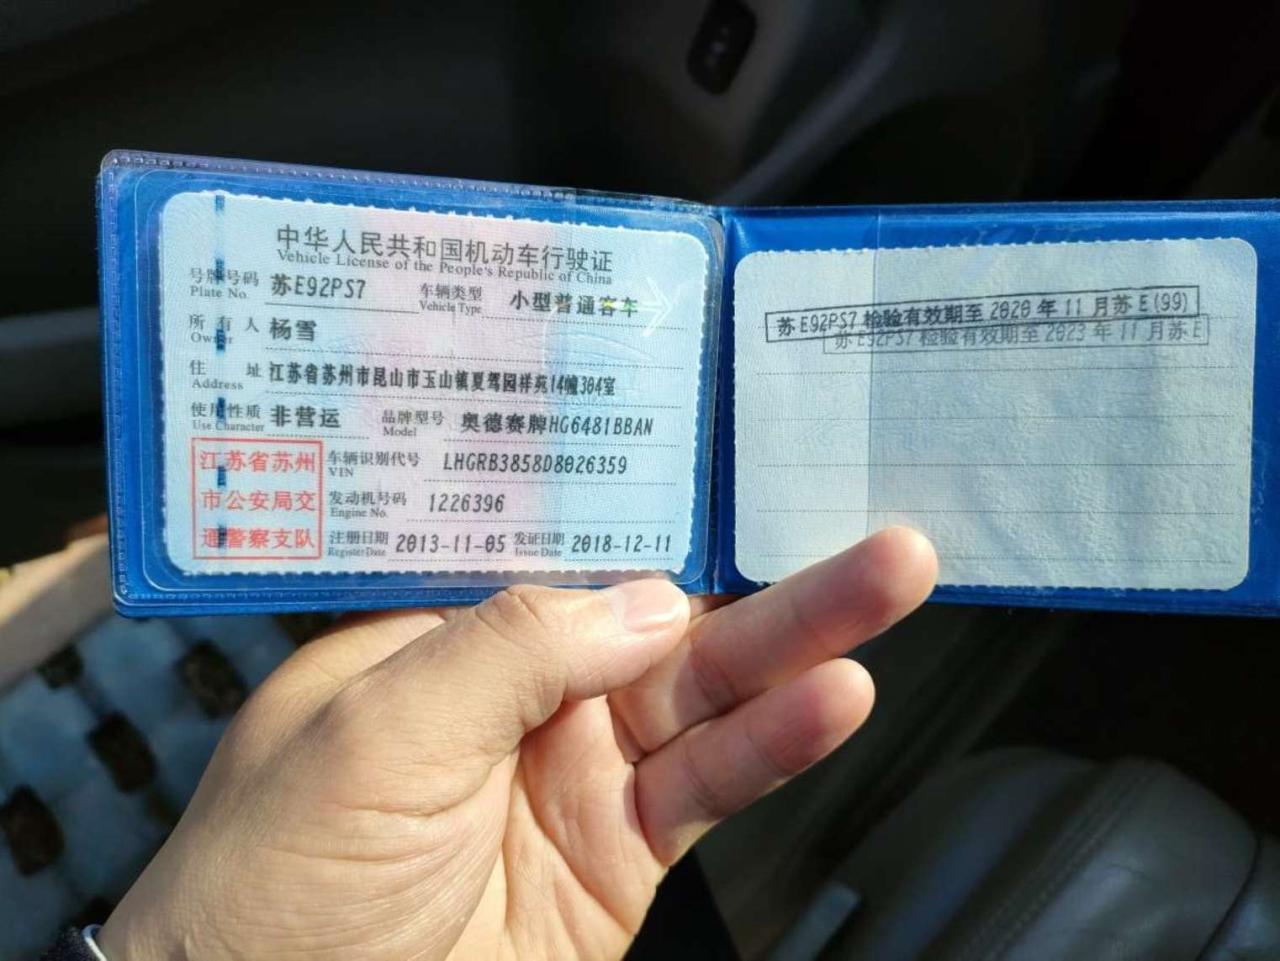 中华人民共和国机动车行驶证
Vehicle License of the People's Republic of China
号牌号码 苏E92PS7 车辆类型 小型普通客车
Plate No. Vehicle Type
所有人 杨雪
Owner
住址 江苏省苏州市昆山市玉山镇夏驾园祥苑14幢304室
Address
使用性质 非营运 品牌型号 奥德赛牌HG6481BBAN
Use Character Model
江苏省苏州
市公安局交
通警察支队
车辆识别代号 LHGRB3858D8026359
VIN
发动机号码 1226396
Engine No.
注册日期 2013-11-05 发证日期 2018-12-11
Register Date Issue Date
苏E92PS7 检验有效期至 2020 年 11 月苏 E(99)
苏 E92PS7 检验有效期至 2023 年 11 月苏 E